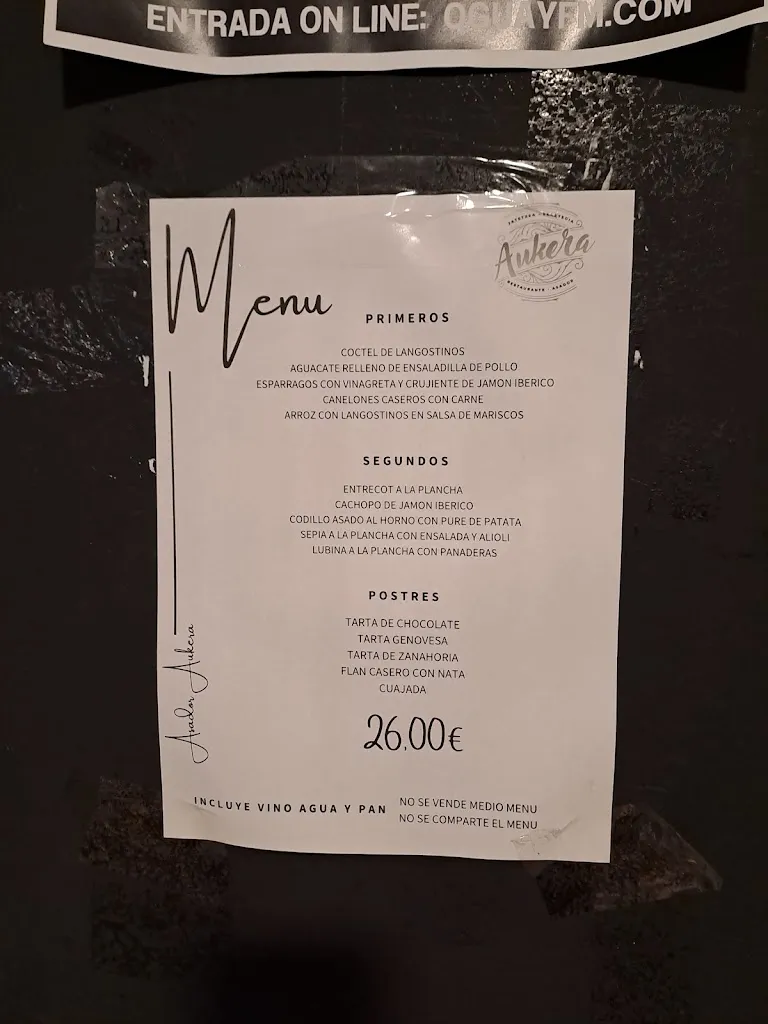 ENTRADA ON LINE: OGUAYFM.COM
Menu
Aukera
RESTAURANTE · ASADOR
PRIMEROS
COCTEL DE LANGOSTINOS
AGUACATE RELLENO DE ENSALADILLA DE POLLO
ESPARRAGOS CON VINAGRETA Y CRUJIENTE DE JAMON IBERICO
CANELONES CASEROS CON CARNE
ARROZ CON LANGOSTINOS EN SALSA DE MARISCOS
SEGUNDOS
ENTRECOT A LA PLANCHA
CACHOPO DE JAMON IBERICO
CODILLO ASADO AL HORNO CON PURE DE PATATA
SEPIA A LA PLANCHA CON ENSALADA Y ALIOLI
LUBINA A LA PLANCHA CON PANADERAS
POSTRES
TARTA DE CHOCOLATE
TARTA GENOVESA
TARTA DE ZANAHORIA
FLAN CASERO CON NATA
CUAJADA
26,00€
Asador Aukera
INCLUYE VINO AGUA Y PAN
NO SE VENDE MEDIO MENU
NO SE COMPARTE EL MENU